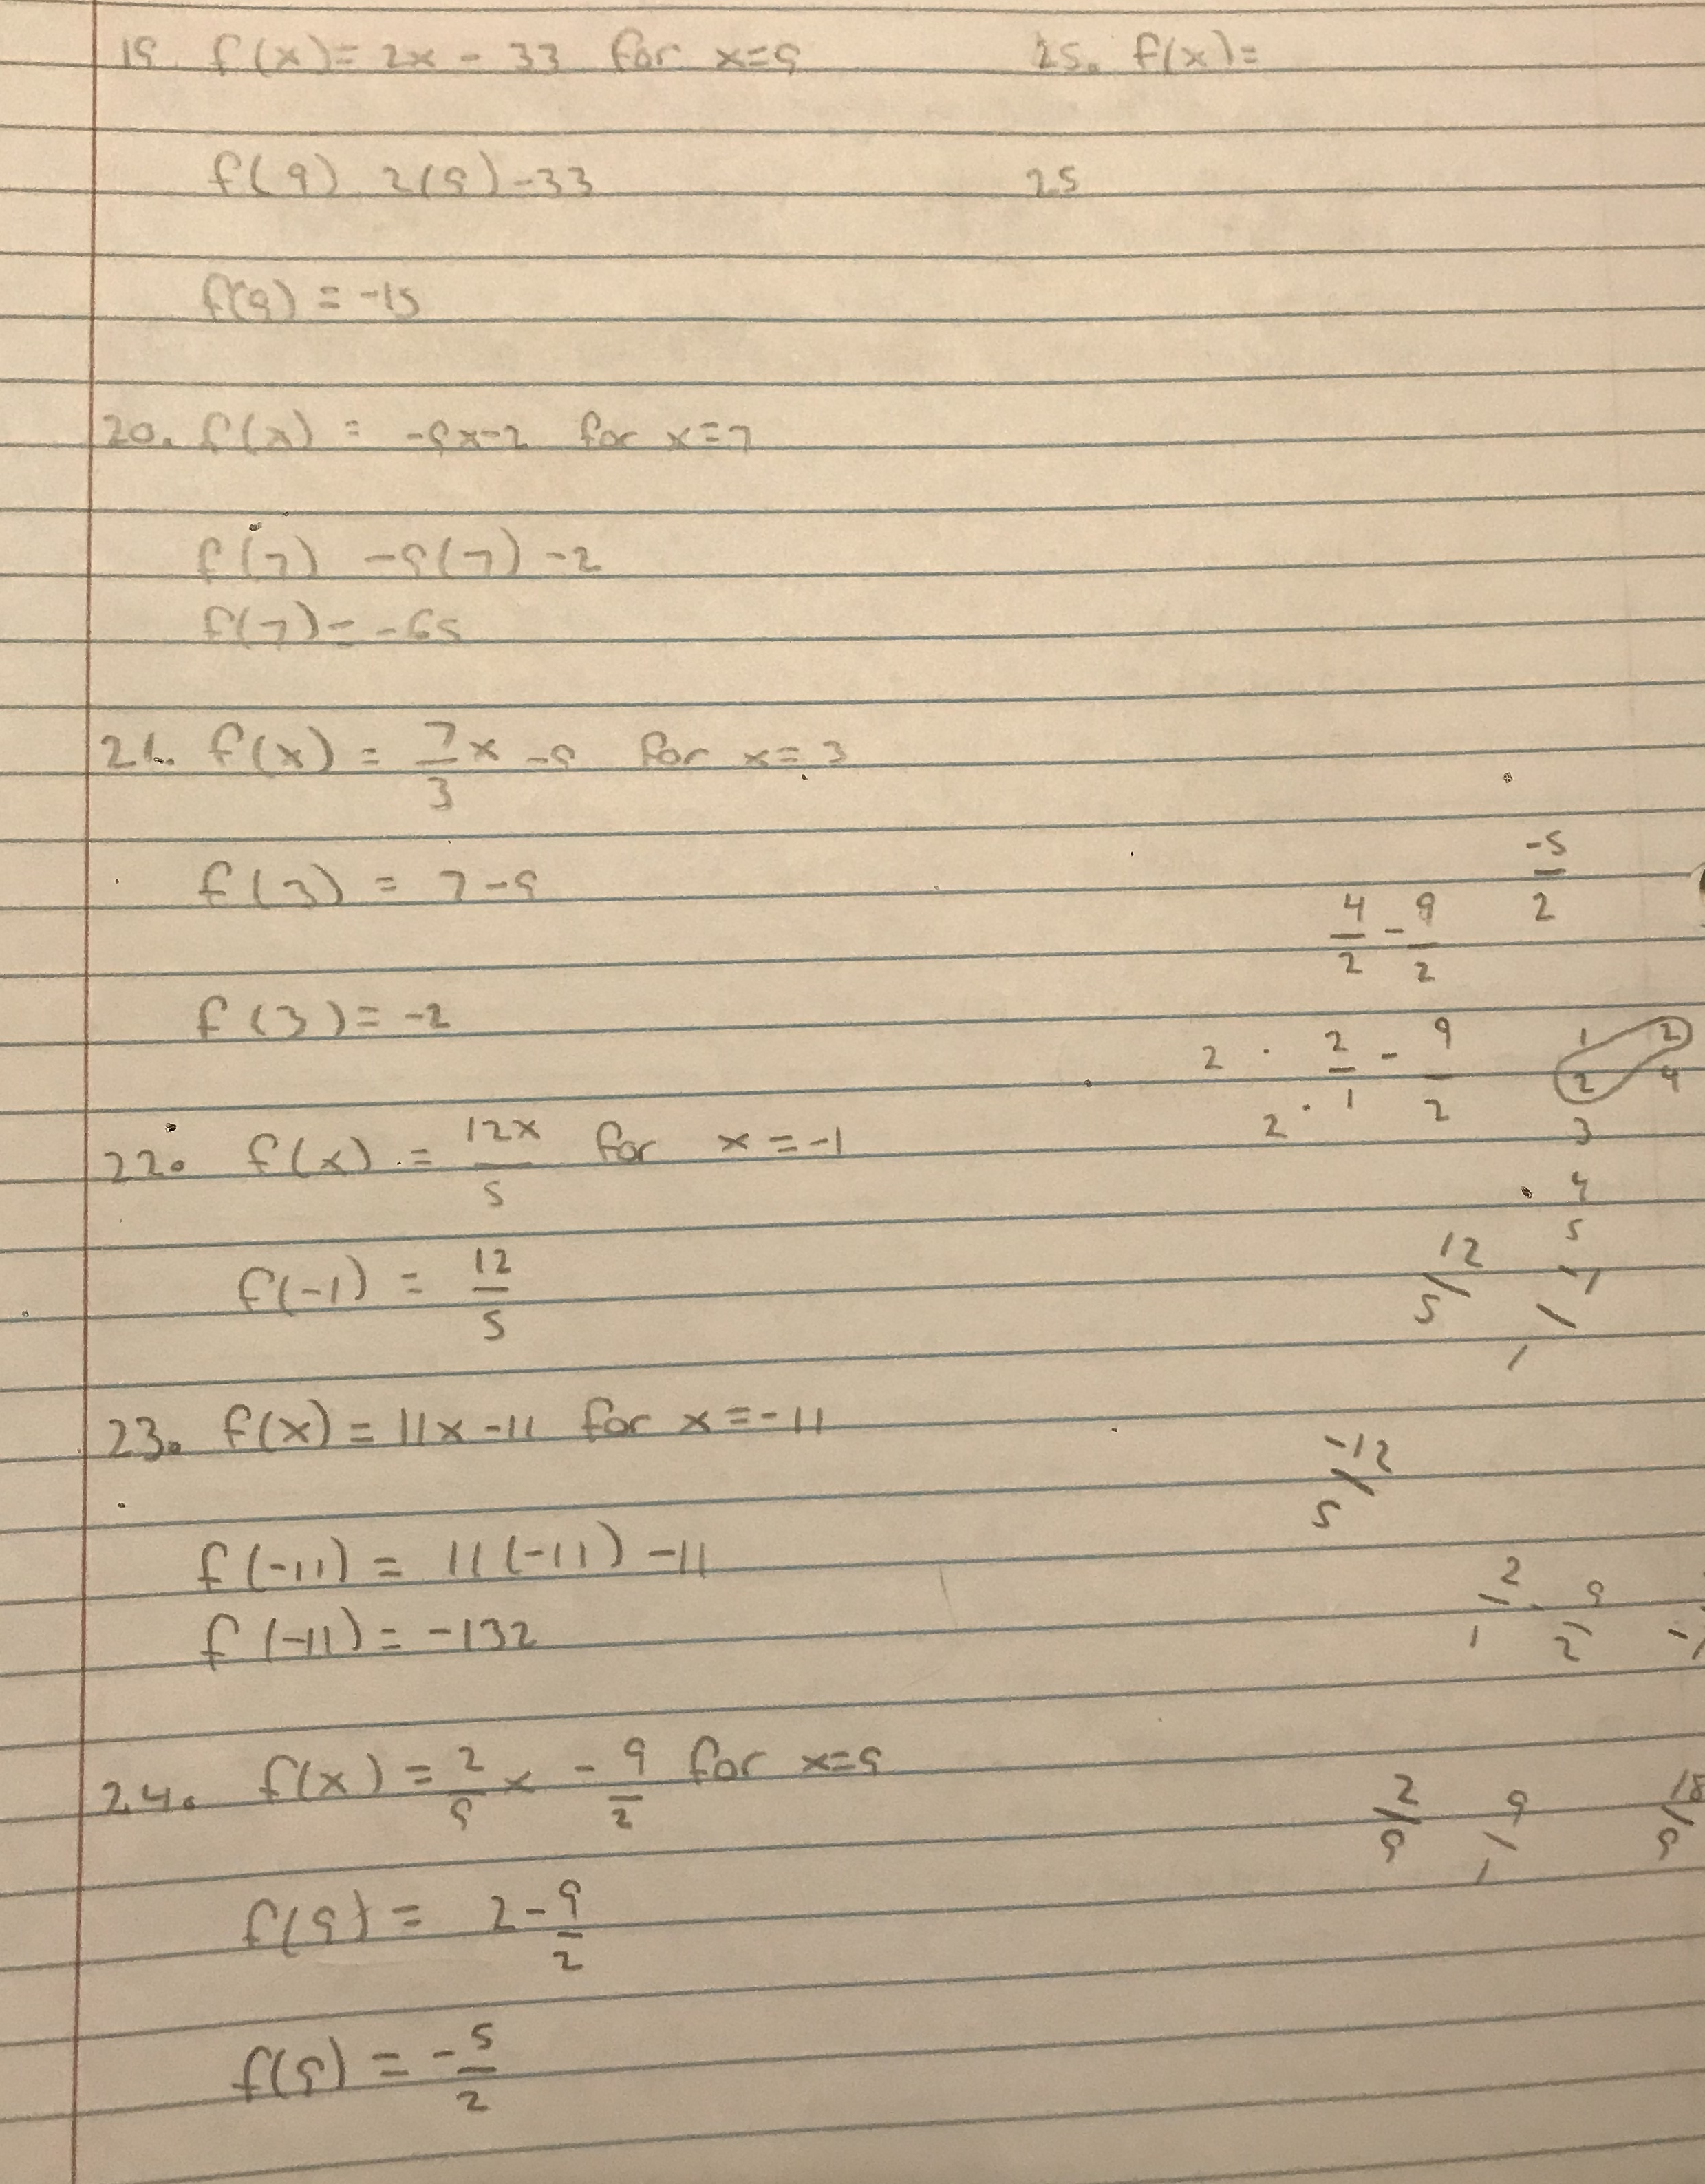 19. f(x) = 2x - 33 for x=9
f(9) 2(9)-33
f(9) = -15
20. f(x) = -9x-2 for x=7
f(7) -9(7) -2
f(7) = -65
21. f(x) = 7/3 x -9 for x=3
f(3) = 7-9
f(3) = -2
22. f(x) = 12x/5 for x=-1
f(-1) = 12/5
23. f(x) = 11x-11 for x=-11
f(-11) = 11(-11) -11
f(-11) = -132
24. f(x) = 2/9 x - 9/2 for x=9
f(9) = 2 - 9/2
f(9) = - 5/2
25. f(x)=
25
-5/2
4/2 - 9/2
2 · 2/1 - 9/2
2 ·
1 2
2 4
3
4
5
12/5 -1/1
-12/5
2/1 - 9/2
2/9 9/1 18/9